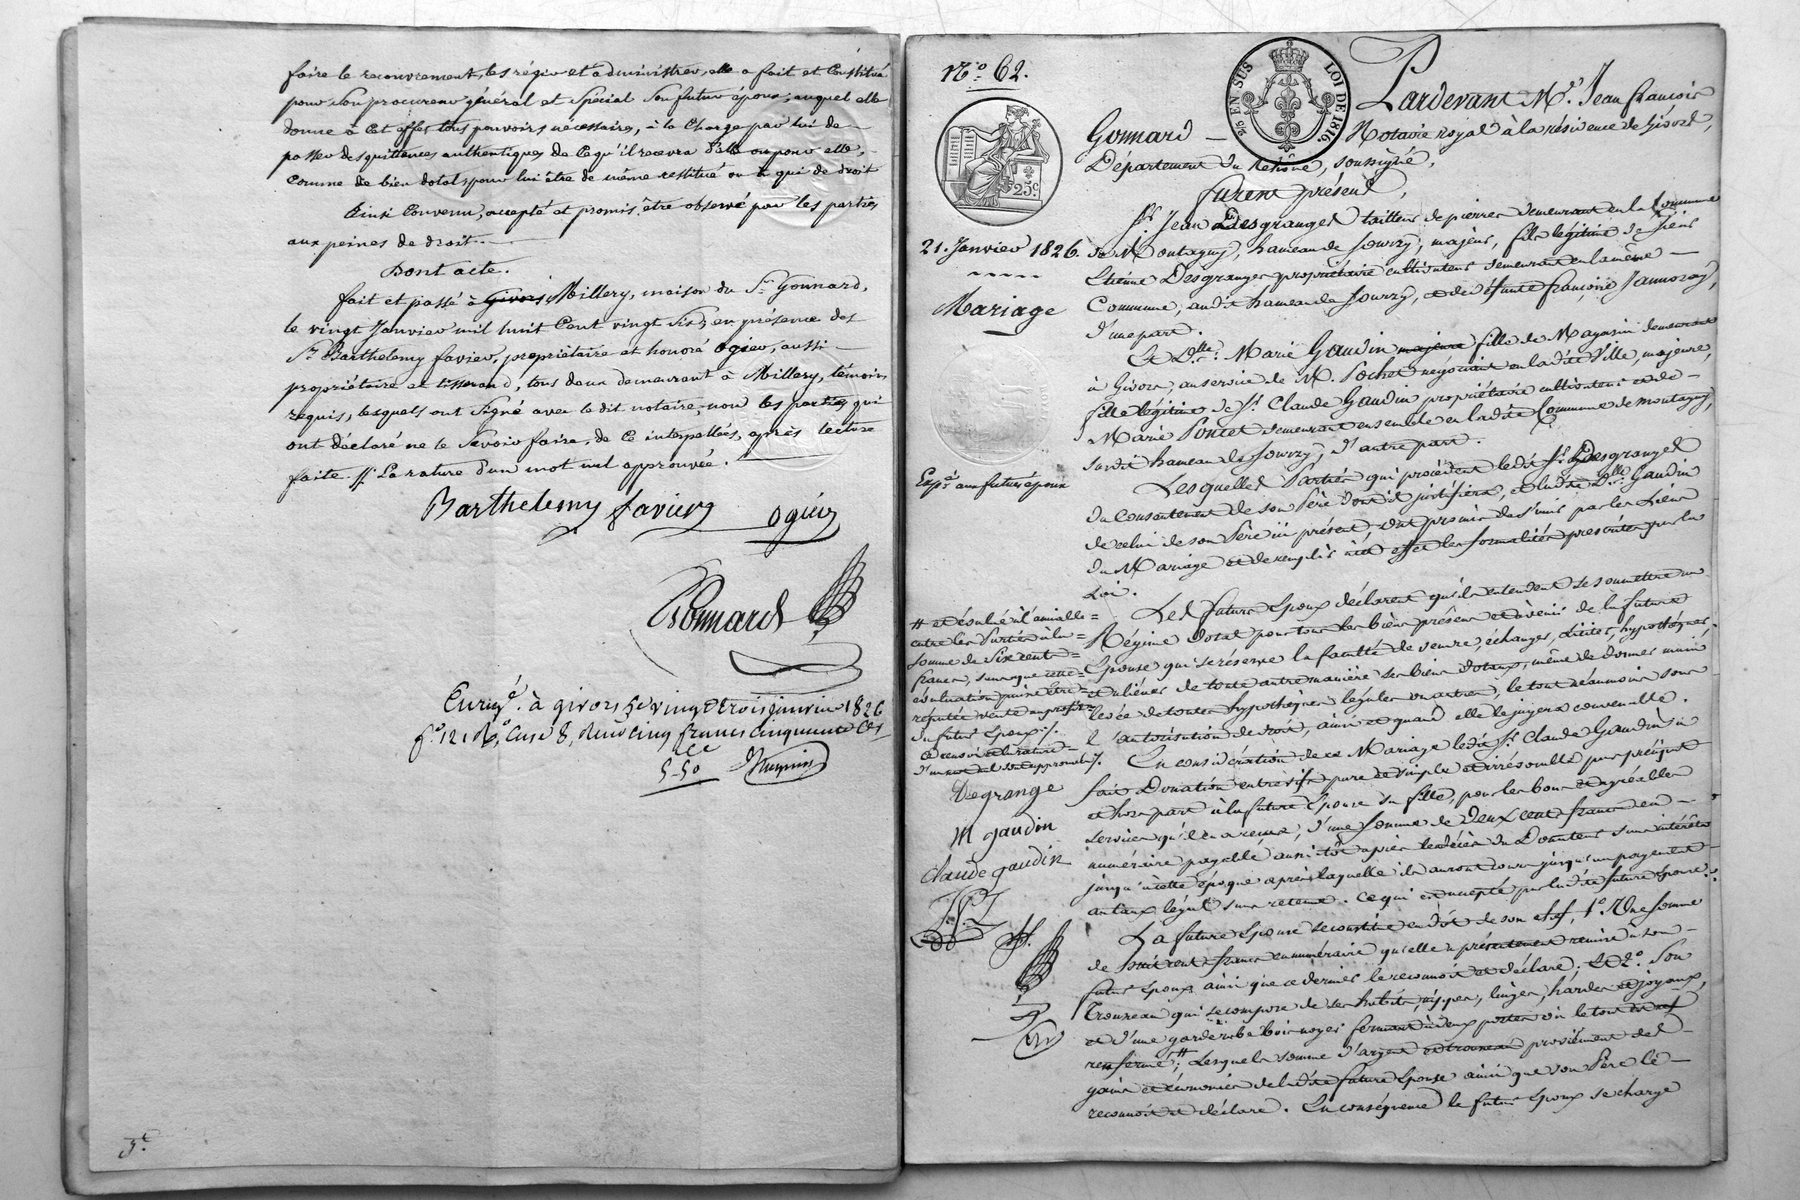 faire le recouvrement, les régir et administrer, elle a fait et Constitué
pour Son procureur général et Spécial Son futur époux, auquel elle
donne à Cet effet tous pouvoirs nécessaires, à la Charge par lui de
passer des quittances authentiques de Ce qu'il recevra d'elle ou pour elle,
comme de bien dotal, pour lui être de même restitué ou à qui de droit
Ainsi Convenu, accepté et promis être observé par les parties
aux peines de droit.
Dont acte.
fait et passé à Givors Millery, maison du Sr. Gonnard,
le vingt Janvier mil huit Cent vingt Six, en présence des
Srs. Barthelemy favier, propriétaire et honoré Ogier, aussi
propriétaire et tisserand, tous deux demeurant à Millery, témoins
requis, lesquels ont Signé avec le dit notaire, non les parties qui
ont déclaré ne le Savoir faire, de Ce interpellées, après lecture
faite. // La rature d'un mot nul approuvée.
Barthelemy favier Ogier
Gonnard
Enrgé. à givors le vingt trois janvier 1826
fo. 121 Ro. Case 8, Reçu Cinq francs Cinquante Ces
5-50
3e.
No. 62.
5/5 EN SUS LOI DE 1816.
25c.
21. Janvier 1826.
Mariage
Expé. aux futurs époux
Pardevant Me. Jean françois
Gonnard Notaire royal à la résidence de Givors,
Département du Rhône, soussigné,
furent présent,
Sr. Jean Desgranges tailleur de pierres demeurant en la Commune
de Montagny, hameau de Sourzy, majeur, fils légitime de Sieur
Etienne Desgranges propriétaire cultivateur demeurant en la même
Commune, au dit hameau de Sourzy, et de défunte françoise Jannoray,
d'une part.
Et Dlle. Marie Gaudin majeure fille de Magasin demeurant
à Givors, au service de M. Pochet négociant en la dite Ville, majeure,
fille légitime de Sr. Claude Gaudin propriétaire cultivateur et de
Marie Poncet demeurant ensemble en la dite Commune de Montagny,
susdit hameau de Sourzy, d'autre part.
Lesquelles Parties qui procèdent le dit Sr. Desgranges
du consentement de son Père dont il justifiera, et la dite Dlle. Gaudin
de celui de son Père ici présent, ont promis de s'unir par les Liens
du Mariage et de remplir à cet effet les formalités prescrites par la
Loi.
Les futurs Epoux déclarent qu'ils entendent se soumettre au
Régime Dotal pour tous les biens présens et à venir de la future
Epouse qui se réserve la faculté de vendre, échanger, liciter, hypothéquer,
et aliéner de toute autre manière ses biens dotaux, même de donner main
levée de toutes hypothèques légales ou autres, le tout néanmoins sous
l'autorisation de droit, ainsi et quand elle le jugera convenable.
En considération de ce Mariage le dit Sr. Claude Gaudin a
fait Donation entre vifs pure et simple et irrévocable par préciput
et hors part à la future Epouse sa fille, pour les bons et agréables
services qu'il en a reçus, d'une somme de Deux cents francs en
numéraire payable aussitôt après le décès du Donateur sans intérêts
jusqu'à cette époque après laquelle ils auront cours jusqu'au payement
au taux légal sans retenue. ce qui est accepté par la dite future Epouse.
La future Epouse se constitue en dot de son chef, 1o. Une somme
de huit cents francs en numéraire qu'elle a présentement remise à son
futur Epoux ainsi que ce dernier le reconnoit et déclare; Et 2o. Son
Trousseau qui se compose de ses habits, nippes, linges, hardes et joyaux,
et d'une garderobe bois noyer fermant à deux portes où le tout est
renfermé #; Lesquels somme d'argent et trousseau proviennent des
gains et économies de la dite future Epouse ainsi que son Père le
reconnoit et déclare. En conséquence le futur Epoux se charge
# et évalué à l'amiable
entre les Parties à la
somme de Six cents
francs, sans que cette
évaluation puisse être
réputée vente au profit
du futur Epoux ./.
Ce renvoi et la rature
d'un mot nul sont approuvés ./.
Degrange
M gaudin
Claude gaudin